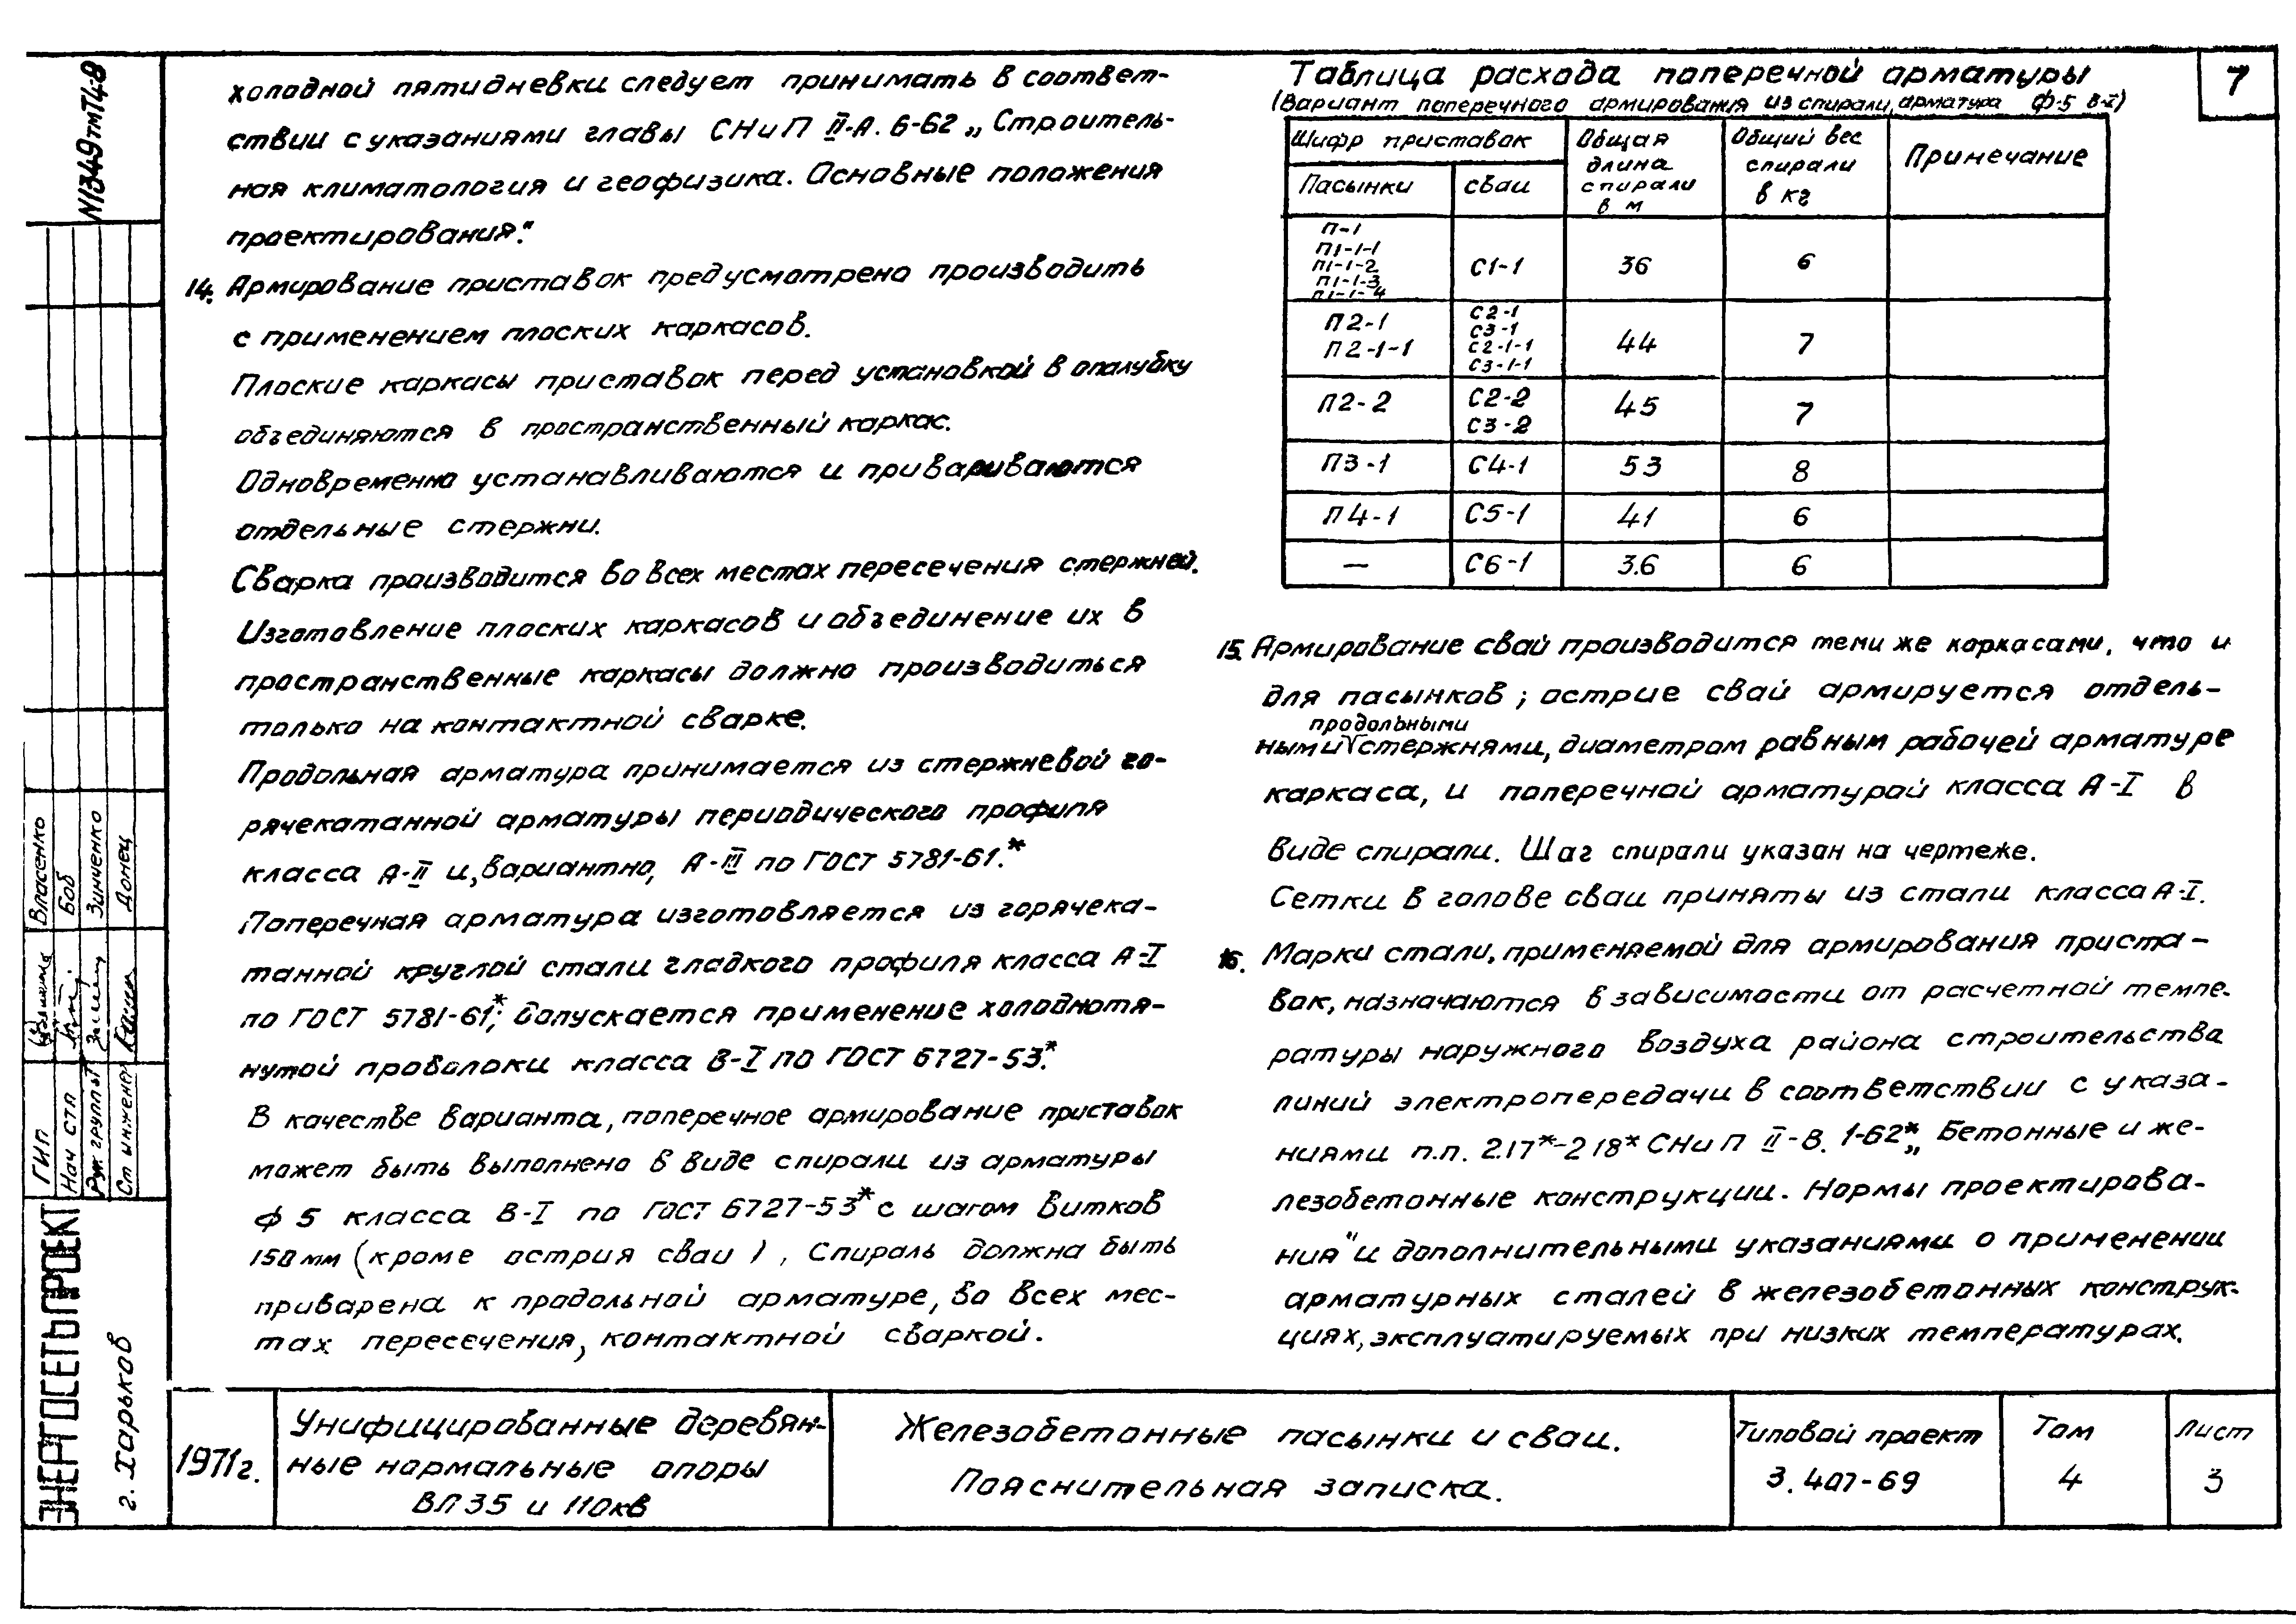 7
N1349тмТ4-8
холодной пятидневки следует принимать в соответ-
ствии с указаниями главы СНиП II-А. 6-62 „Строитель-
ная климатология и геофизика. Основные положения
проектирования."
14. Армирование приставок предусмотрено производить
с применением плоских каркасов.
Плоские каркасы приставок перед установкой в опалубку
объединяются в пространственный каркас.
Одновременно устанавливаются и привариваются
отдельные стержни.
Сварка производится во всех местах пересечения стержней.
Изготовление плоских каркасов и объединение их в
пространственные каркасы должно производиться
только на контактной сварке.
Продольная арматура принимается из стержневой го-
рячекатанной арматуры периодического профиля
класса А-II и, вариантно, А-III по ГОСТ 5781-61.*
Поперечная арматура изготовляется из горячека-
танной круглой стали гладкого профиля класса А-I
по ГОСТ 5781-61*; допускается применение холоднотя-
нутой проволоки класса В-I по ГОСТ 6727-53.*
В качестве варианта, поперечное армирование приставок
может быть выполнено в виде спирали из арматуры
ф 5 класса В-I по ГОСТ 6727-53* с шагом витков
150 мм (кроме острия сваи), Спираль должна быть
приварена к продольной арматуре, во всех мес-
тах пересечения, контактной сваркой.
Таблица расхода поперечной арматуры
(Вариант поперечного армирования из спирали, арматура ф-5 В-I)
Шифр приставок
Пасынки
сваи
Общая
длина
спирали
в м
Общий вес
спирали
в кг
Примечание
П-1
П1-1-1
П1-1-2
П1-1-3
П1-1-4
С1-1
36
6
П2-1
П2-1-1
С2-1
С3-1
С2-1-1
С3-1-1
44
7
П2-2
С2-2
С3-2
45
7
П3-1 С4-1 53 8
П4-1 С5-1 41 6
— С6-1 3.6 6
15. Армирование свай производится теми же каркасами, что и
для пасынков; острие свай армируется отдель-
продольными
ными стержнями, диаметром равным рабочей арматуре
каркаса, и поперечной арматурой класса А-I в
виде спирали. Шаг спирали указан на чертеже.
Сетки в голове сваи приняты из стали класса А-I.
16. Марки стали, применяемой для армирования приста-
вок, назначаются в зависимости от расчетной темпе-
ратуры наружного воздуха района строительства
линий электропередачи в соответствии с указа-
ниями п.п. 2.17*-2 18* СНиП II-В. 1-62* „Бетонные и же-
лезобетонные конструкции. Нормы проектирова-
ния" и дополнительными указаниями о применении
арматурных сталей в железобетонных конструк-
циях, эксплуатируемых при низких температурах.
ЭНЕРГОСЕТЬПРОЕКТ
г. Харьков
ГИП Власенко
Нач СТП Боб
Рук группы Зинченко
Ст инженер Донец
1971г.
Унифицированные деревян-
ные нормальные опоры
ВЛ 35 и 110кв
Железобетонные пасынки и сваи.
Пояснительная записка.
Типовой проект
3.407-69
Том
4
Лист
3